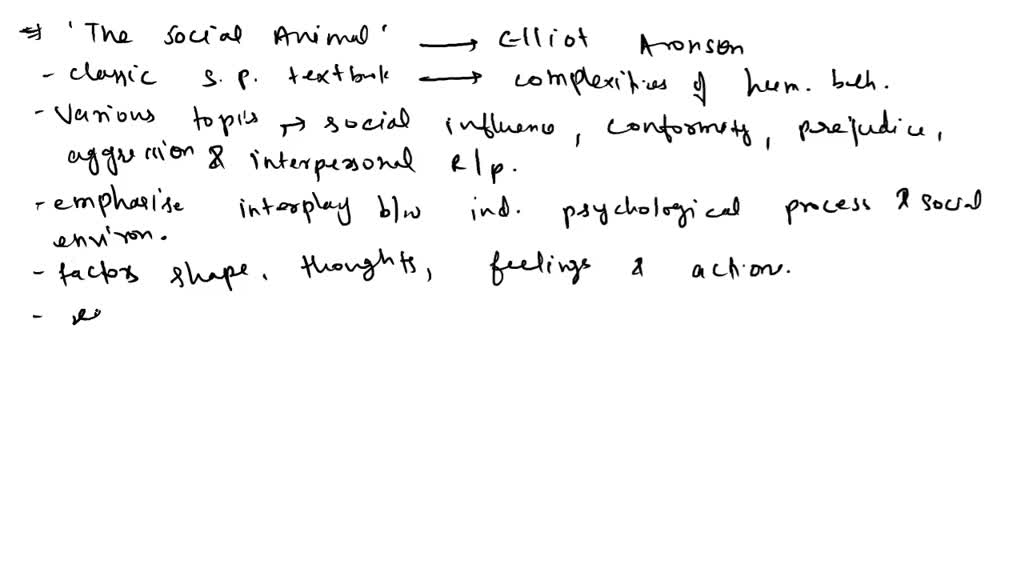 ⇒ 'The Social Animal' → Elliot Aronson
- classic s.p. textbook → complexities of hum. beh.
- Various topics → social influence, conformity, prejudice,
aggression & interpersonal R/p.
- emphasise interplay b/w ind. psychological process & social
environ.
- factors shape. thoughts, feelings & action.
-